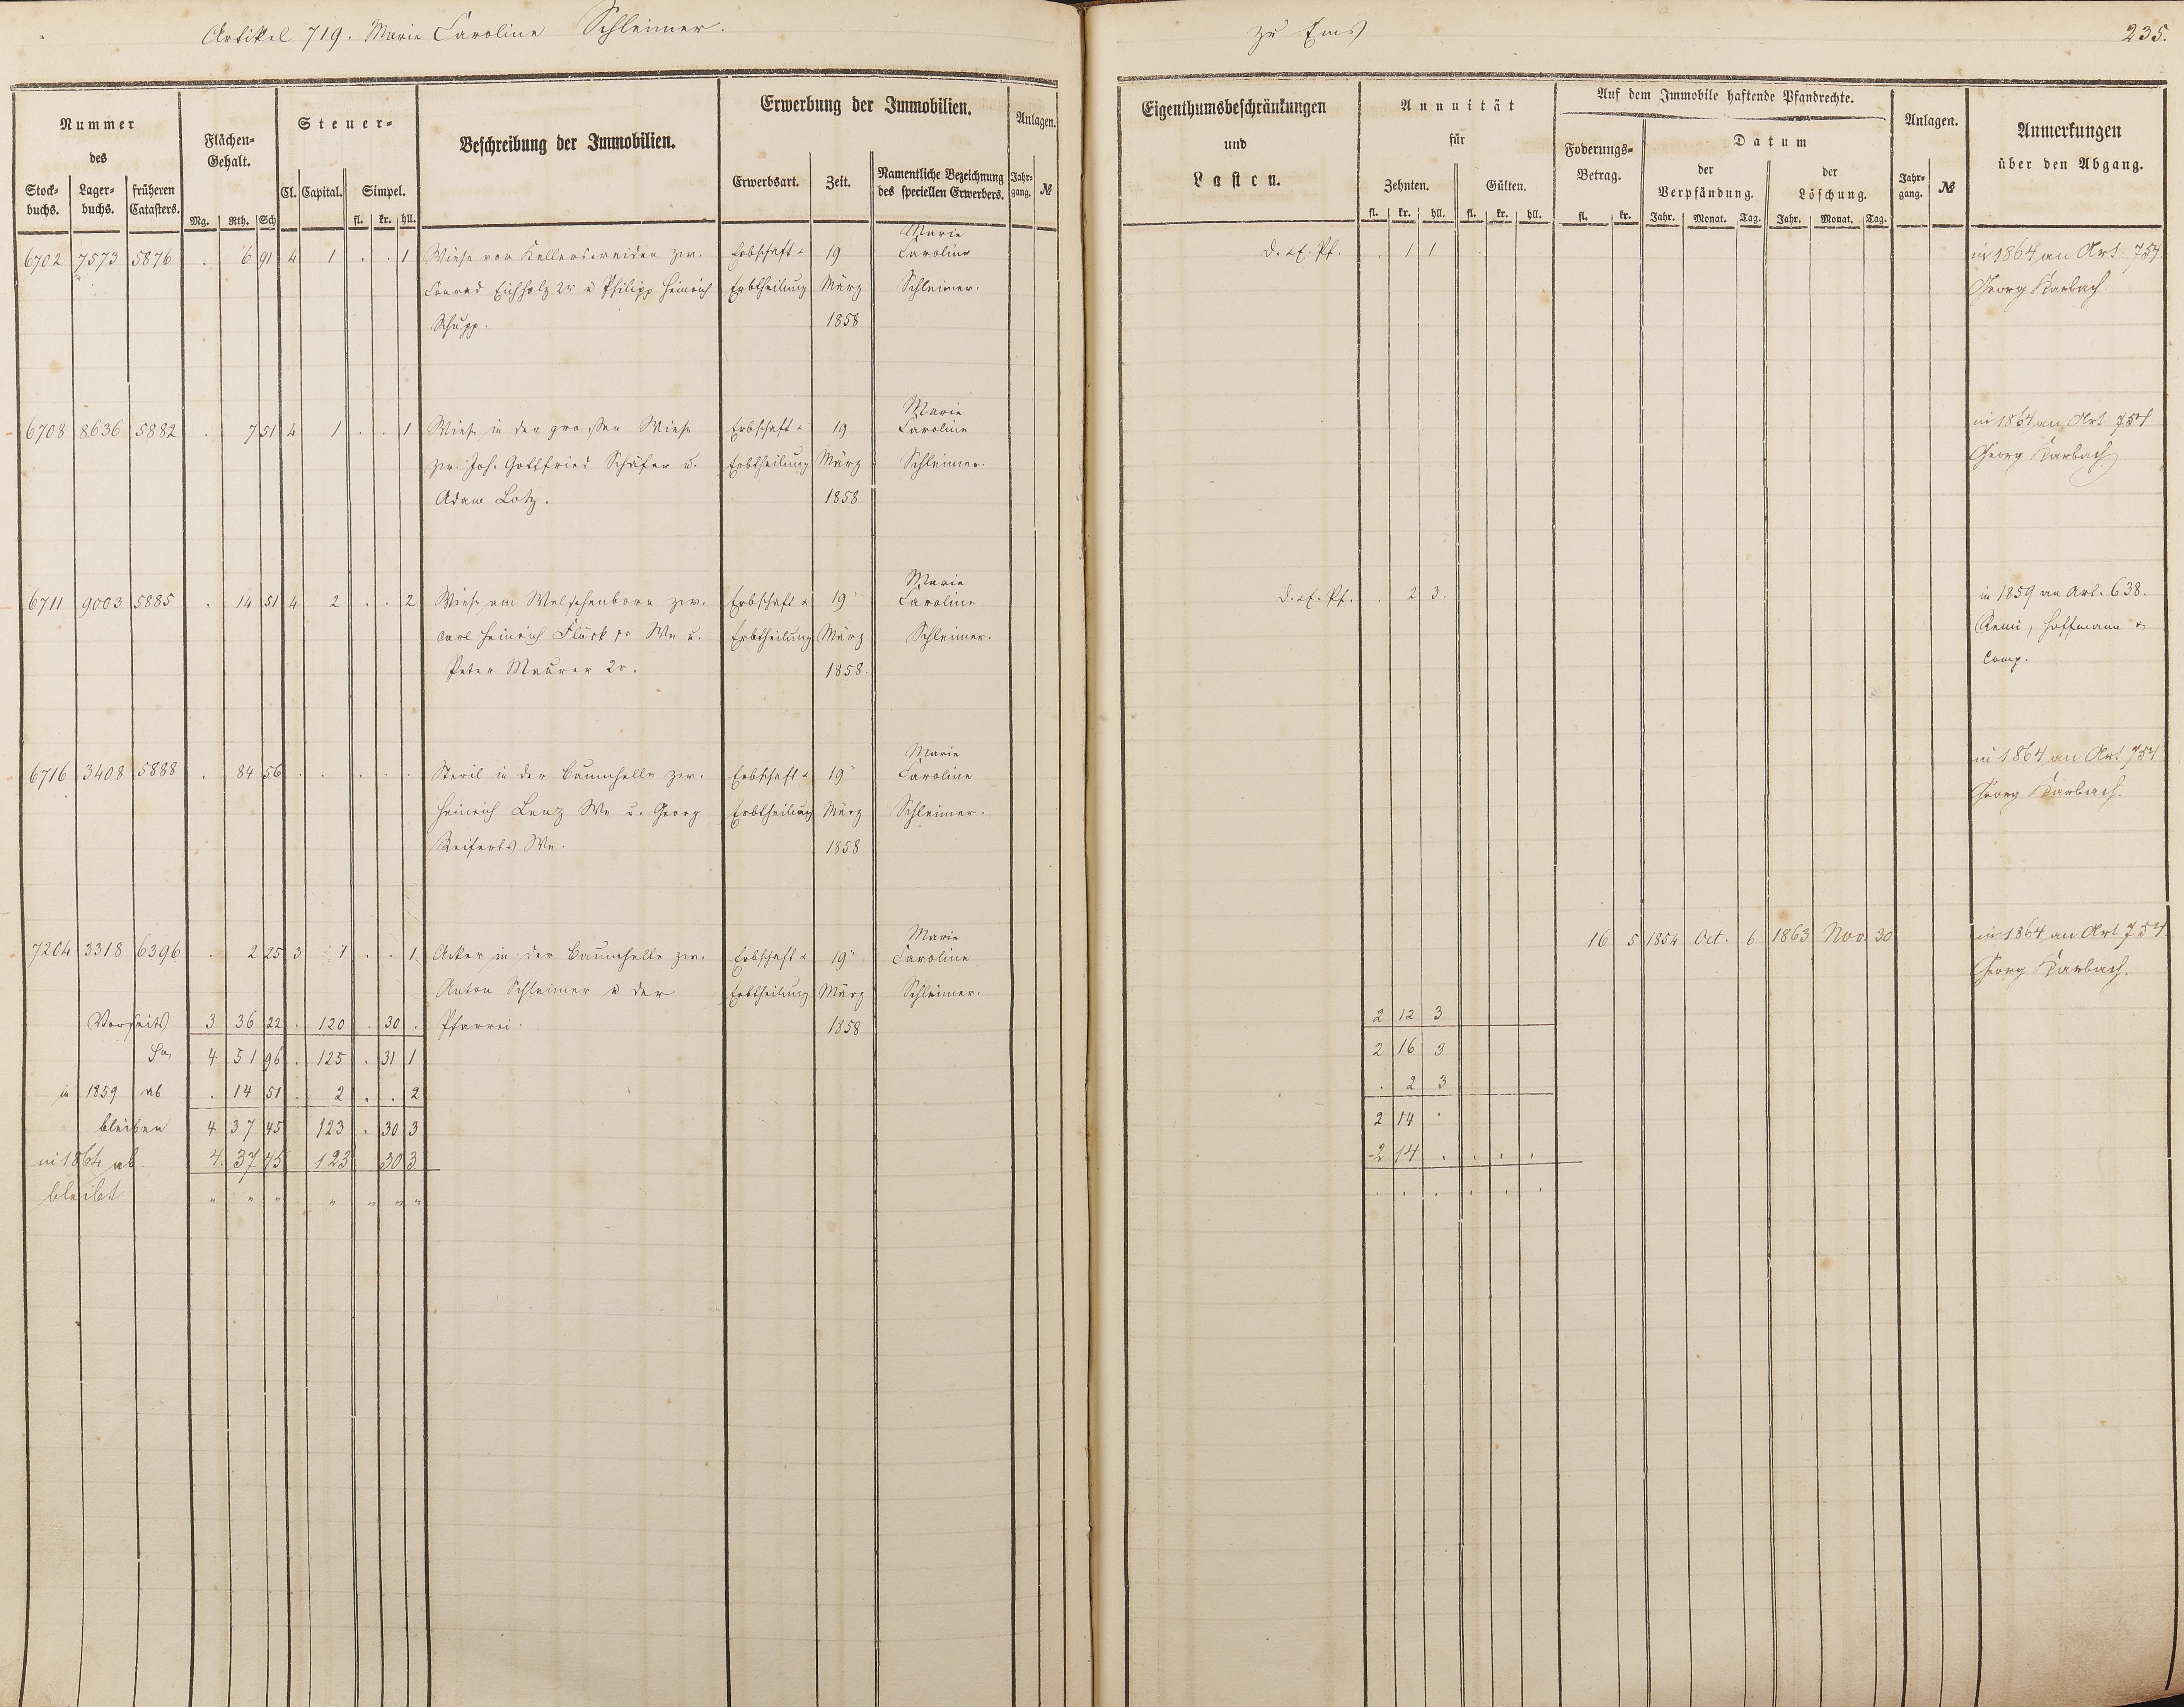 Artikel 719. Marie Caroline Schleimer.
zu Ems
235.
Nummer
des
Stock-
buchs.
Lager-
buchs.
früheren
Catasters.
Flächen-
Gehalt.
Mg. Rth. Sch
Steuer-
Cl. Capital. Simpel.
fl. kr. hll.
Beschreibung der Immobilien.
Erwerbung der Immobilien.
Erwerbsart. Zeit.
Namentliche Bezeichnung
des speciellen Erwerbers.
Anlagen.
Jahr-
gang. №
Eigenthumsbeschränkungen
und
Lasten.
Annuität
für
Zehnten. Gülten.
fl. kr. hll. fl. kr. hll.
Auf dem Immobile haftende Pfandrechte.
Foderungs-
Betrag.
fl. kr.
Datum
der
Verpfändung.
der
Löschung.
Jahr. Monat. Tag. Jahr. Monat. Tag.
Anlagen.
Jahr-
gang. №
Anmerkungen
über den Abgang.
Marie
6702 7573 5876 . 6 91 4 1 . . 1 Wiese vor Kellersweiden zw. Erbschaft & 19 Caroline d. & f. Pf. . 1 1 in 1864 an Art. 754
Conrad Eichholz 2r u Philipp Heinrich Erbtheilung März Schleimer. Georg Karbach.
Schupp. 1858
Marie
6708 8636 5882 . 7 51 4 1 . . 1 Wiese in der grossen Wiese Erbschaft & 19 Caroline in 1864 an Art 754
zw. Joh. Gottfried Schäfer u. Erbtheilung März Schleimer. Georg Karbach
Adam Lotz. 1858
Marie
6711 9003 5885 . 14 51 4 2 . . 2 Wiese am Welschenborn zw. Erbschaft & 19 Caroline d. & f. Pf. . 2 3. in 1859 an Art. 638.
Carl Heinrich Flöck 1r We u. Erbtheilung März Schleimer. Remi, Hoffmann &
Peter Maurer 2r. 1858. Comp.
Marie
6716 3408 5888 . 84 56 . . . . . Steril in der Baumhelle zw. Erbschaft & 19 Caroline in 1864 an Art 754
Heinrich Lenz We u. Georg Erbtheilung März Schleimer. Georg Karbach.
Reiferts We. 1858
Marie
7204 3318 6396 . 2 25 3 1 . . 1 Acker in der Baumhelle zw. Erbschaft & 19 Caroline 16 5 1854 Oct. 6 1863 Nov. 30 in 1864 an Art 754
Anton Schleimer u der Erbtheilung März Schleimer. Georg Karbach.
Vorseits 3 36 22 . 120 . 30 . Pfarrei. 1858 2 12 3
Sa 4 51 96 . 125 . 31 1 2 16 3
in 1859 ab . 14 51 . 2 . . 2 . 2 3
bleiben 4 37 45 123 . 30 3 2 14 .
in 1864 ab. 4. 37 45 123 30 3 2 14 . . . .
bleibt " " " " " " " . . . . . .